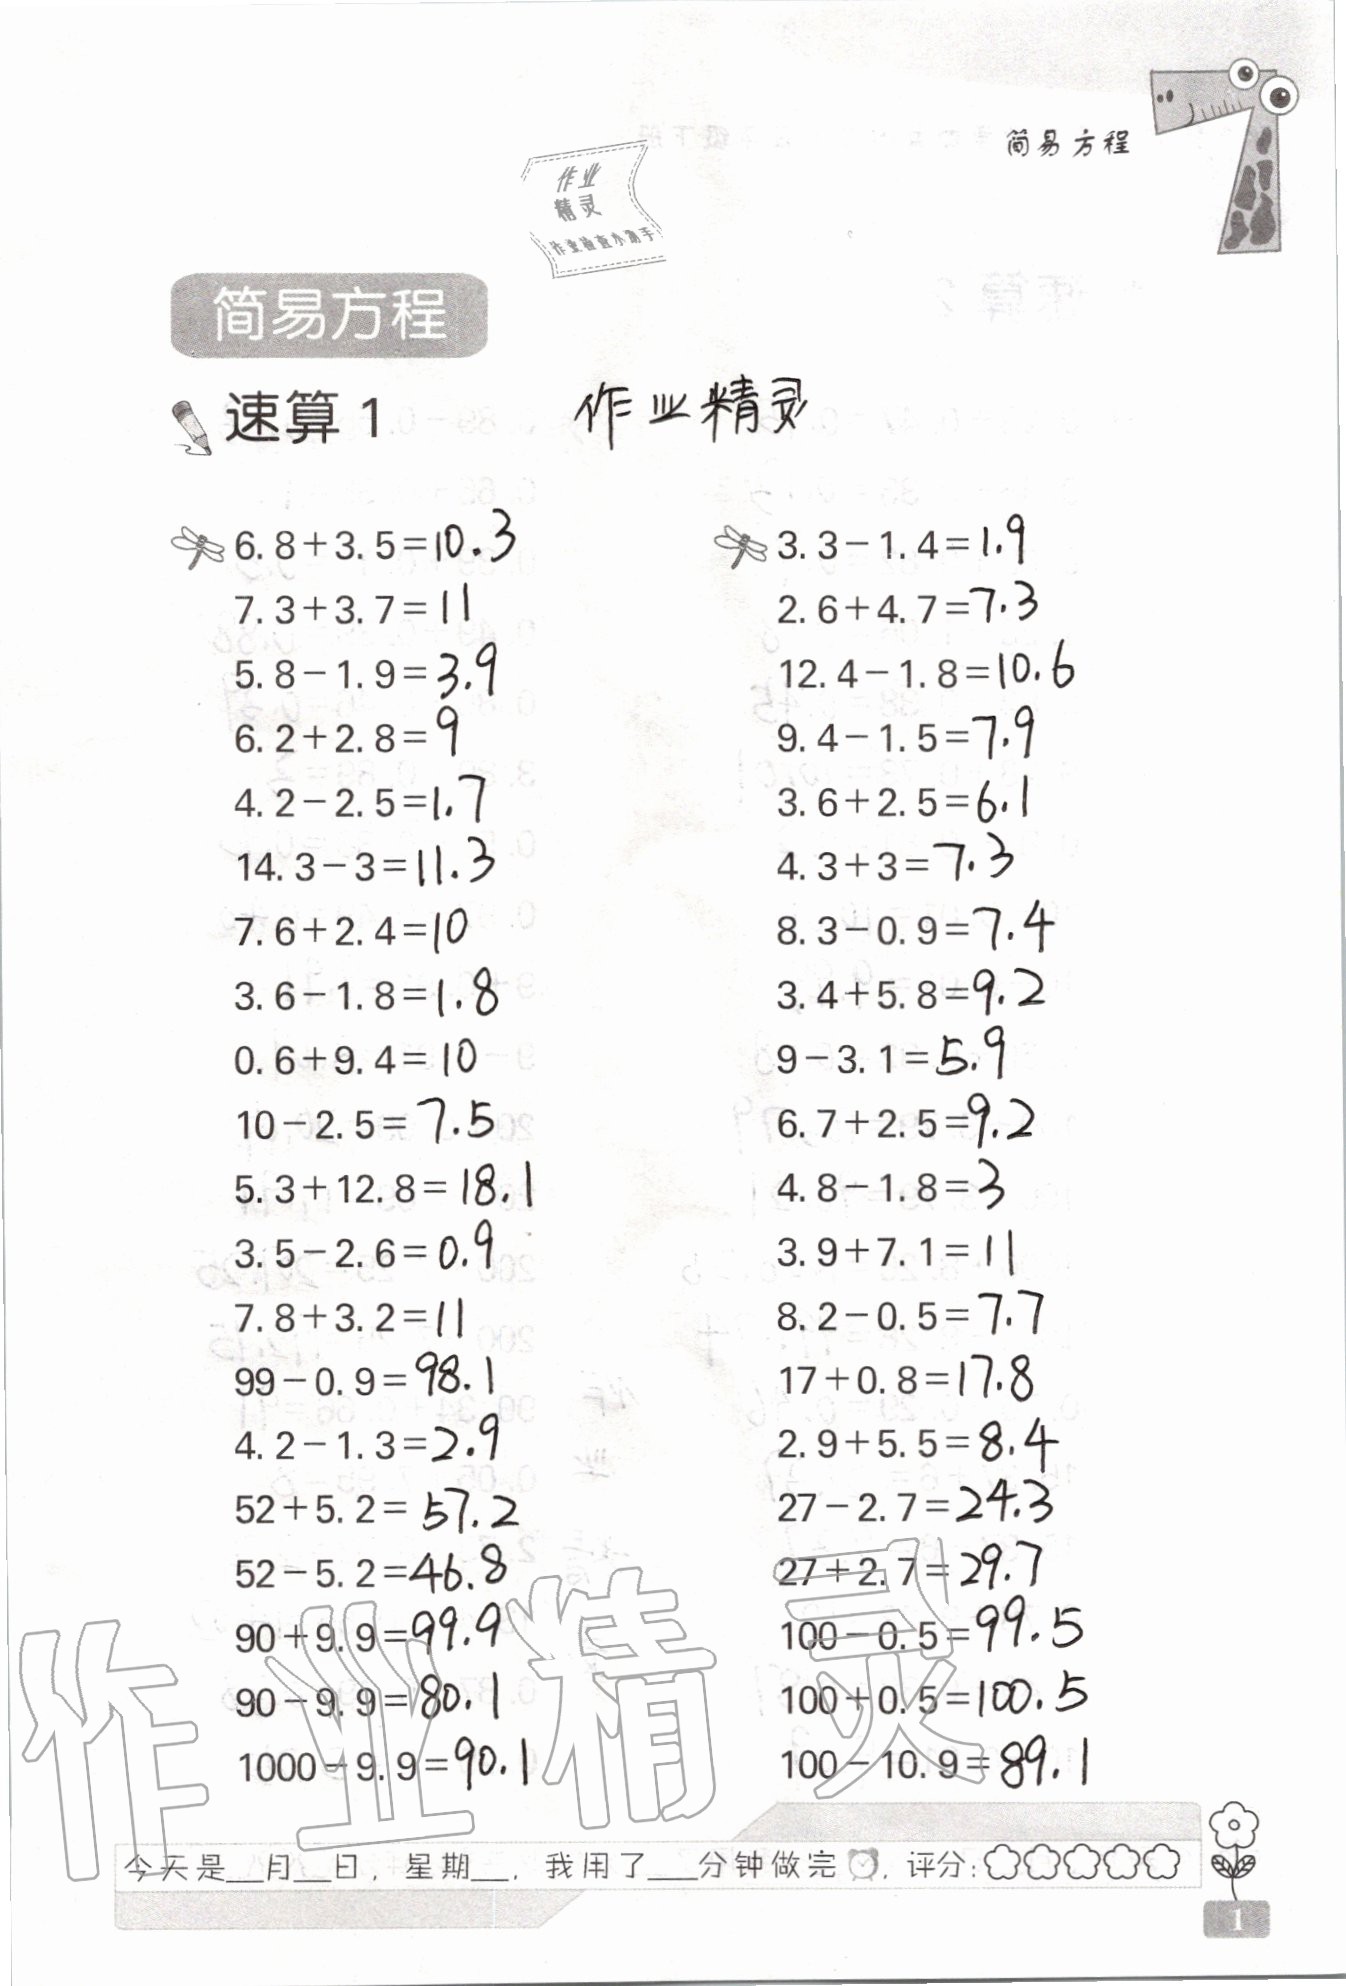 简易方程
作业
精灵
作业检查小助手
简易方程
速算1
作业精灵
6.8+3.5=10.3
7.3+3.7=11
5.8-1.9=3.9
6.2+2.8=9
4.2-2.5=1.7
14.3-3=11.3
7.6+2.4=10
3.6-1.8=1.8
0.6+9.4=10
10-2.5=7.5
5.3+12.8=18.1
3.5-2.6=0.9
7.8+3.2=11
99-0.9=98.1
4.2-1.3=2.9
52+5.2=57.2
52-5.2=46.8
90+9.9=99.9
90-9.9=80.1
1000-9.9=90.1
3.3-1.4=1.9
2.6+4.7=7.3
12.4-1.8=10.6
9.4-1.5=7.9
3.6+2.5=6.1
4.3+3=7.3
8.3-0.9=7.4
3.4+5.8=9.2
9-3.1=5.9
6.7+2.5=9.2
4.8-1.8=3
3.9+7.1=11
8.2-0.5=7.7
17+0.8=17.8
2.9+5.5=8.4
27-2.7=24.3
27+2.7=29.7
100-0.5=99.5
100+0.5=100.5
100-10.9=89.1
作业精灵
今天是__月__日，星期__，我用了__分钟做完，评分：
1